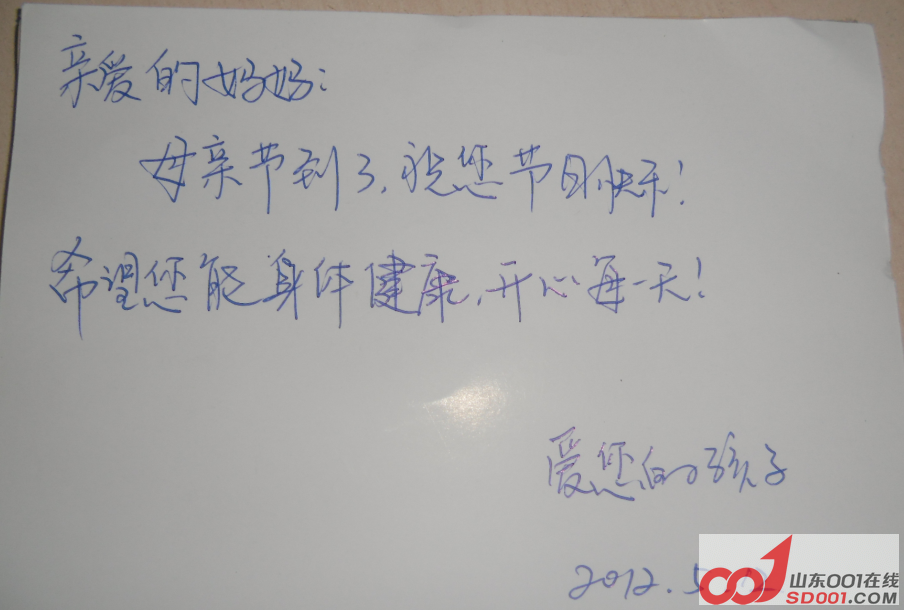 亲爱的妈妈:
母亲节到了,祝您节日快乐!
希望您能身体健康,开心每一天!
爱您的孩子
2012.5.12
山东001在线
SD001.COM